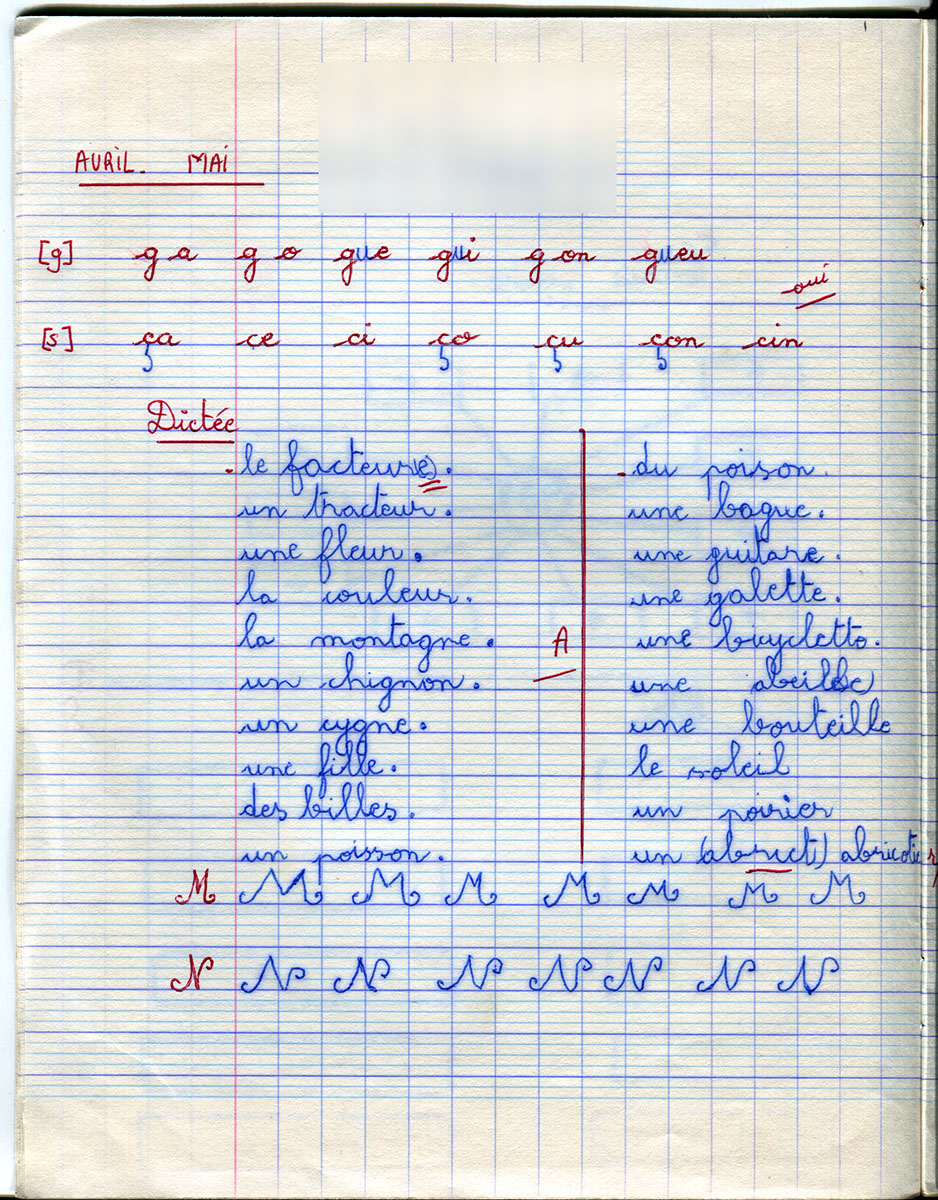 AVRIL. MAI
[g] ga go gue gui gon gueu
oui
[s] ça ce ci ço çu çon cin
Dictée
le facteur(e).
un tracteur.
une fleur.
la couleur.
la montagne.
un chignon.
un cygne.
une fille.
des billes.
un poisson.
A
du poison.
une bague.
une guitare.
une galette.
une bicyclette.
une abeille
une bouteille
le soleil
un poirier
un (abrict) abricotier
M M M M M M M M
N N N N N N N N